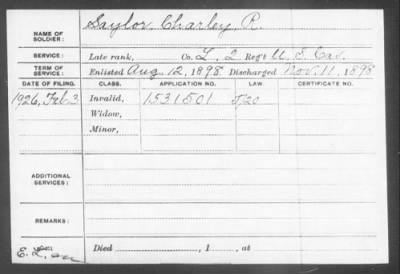 NAME OF SOLDIER: Saylor, Charley R.
SERVICE: Late rank, Co. L, 2 Reg't U.S. Cav.
TERM OF SERVICE: Enlisted Aug. 12, 1898. Discharged Nov. 11, 1898
DATE OF FILING. CLASS. APPLICATION NO. LAW. CERTIFICATE NO.
1926, Feb. 3 Invalid, 1531501
Widow,
Minor,
ADDITIONAL SERVICES:
REMARKS:
Died , 1 , at